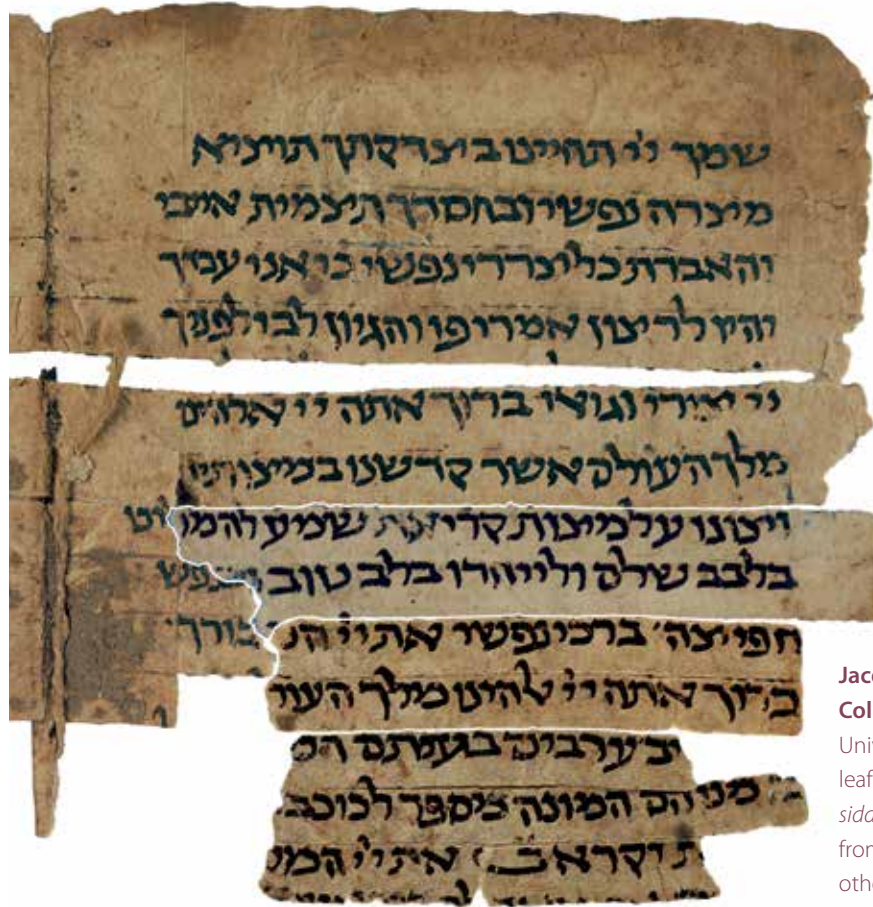 שמך יי תחיינו ביצדקתך תוציא
מיצרה נפשי ובחסדך תיצמית אויבי
והאבדת כל יצררי נפשי כי אני עבדך
והיו לריצון אמרי פי והגיון לבי לפניך
יי יצורי וגואלי ברוך אתה יי אלהינו
מלך העולם אשר קדשנו במיצותיו
ויצונו על מיצות קריאת שמע
בלבב שלם ולייחדו בלב טוב ובנפש
חפיצה ברכי נפשי את יי
ברוך אתה יי אלהינו מילך העו
יב ערבים
המונה מיספר לכוכב
ת ויקרא את יי המ
Jaco
Col
Univ
leaf
sidd
from
othe